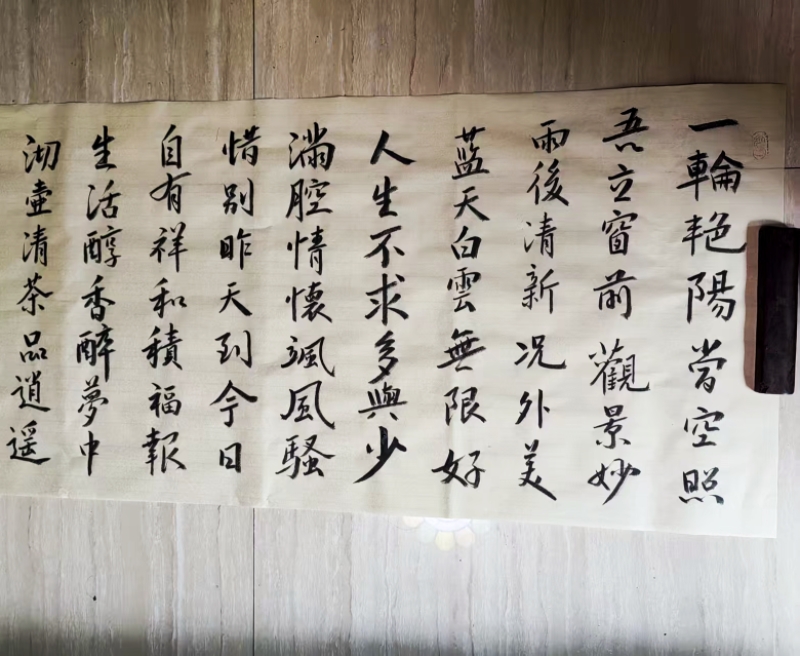 一輪艳陽當空照
吾立窗前觀景妙
雨後清新况外美
蓝天白雲無限好
人生不求多與少
满腔情懷颯風騷
惜别昨天到今日
自有祥和積福報
生活醇香醉夢中
沏壶清茶品逍遥